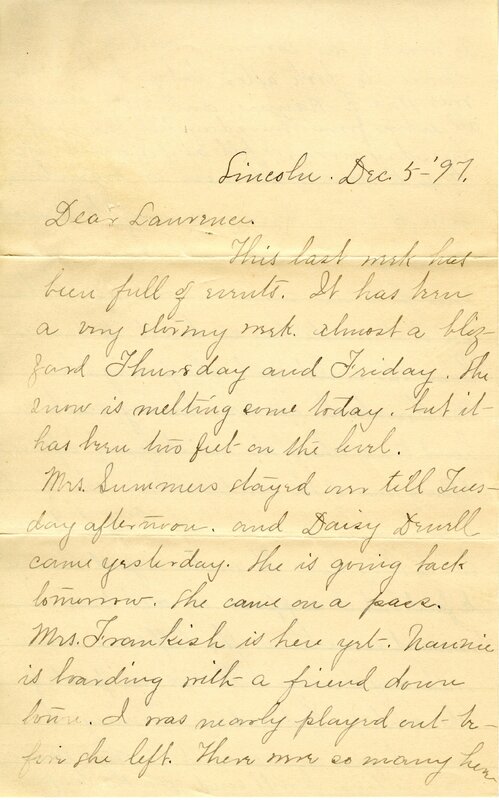 Lincoln. Dec. 5-'97.
Dear Lawrence.
This last week has
been full of events. It has been
a very stormy week. almost a bliz-
zard Thursday and Friday. The
snow is melting some today. but it
has been two feet on the level.
Mrs. Summers stayed over till Tues-
day afternoon. and Daisy Dewell
came yesterday. She is going back
tomorrow. She came on a pass.
Mrs. Frankish is here yet. Nannie
is boarding with a friend down
town. I was nearly played out be-
fore she left. There were so many here